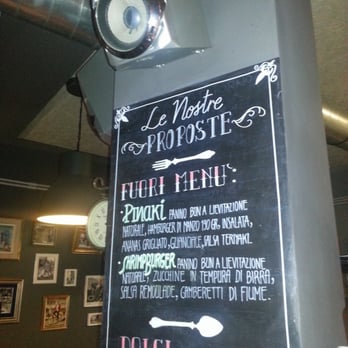 Le Nostre
PROPOSTE
FUORI MENU:
• PINAKI PANINO BUN A LIEVITAZIONE
NATURALE, HAMBURGER DI MANZO 190 GR, INSALATA,
ANANAS GRIGLIATO, GUANCIALE, SALSA TERIYAKI.
• SHRIMPBURGER PANINO BUN A LIEVITAZIONE
NATURALE, ZUCCHINE IN TEMPURA DI BIRRA,
SALSA REMOULADE, GAMBERETTI DI FIUME.
DOLCI